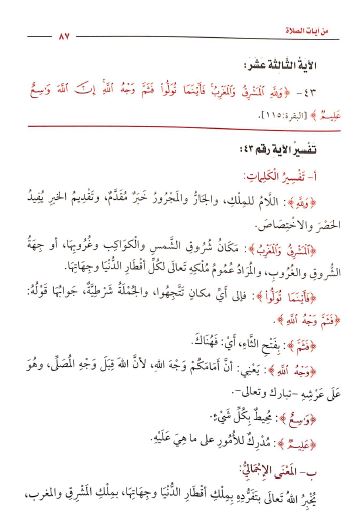 من آيات الصلاة ٨٧
الآية الثالثة عشر:
٤٣- ﴿وَلِلَّهِ الْمَشْرِقُ وَالْمَغْرِبُ فَأَيْنَمَا تُوَلُّوا فَثَمَّ وَجْهُ اللَّهِ إِنَّ اللَّهَ وَاسِعٌ
عَلِيمٌ﴾ [البقرة: ١١٥].
تفسير الآية رقم ٤٣:
أ- تَفْسِيرُ الْكَلِمَاتِ:
﴿وَلِلَّهِ﴾: اللَّامُ لِلمِلْكِ، وَالجَارُّ وَالمَجْرُورُ خَبَرٌ مُقَدَّمٌ، وَتَقْدِيمُ الخَبَرِ يُفِيدُ
الحَصْرَ وَالاخْتِصَاصَ.
﴿الْمَشْرِقُ وَالْمَغْرِبُ﴾: مَكَانُ شُرُوقِ الشَّمْسِ وَالْكَوَاكِبِ وَغُرُوبِهَا، أو جِهَةُ
الشُّرُوقِ وَالغُرُوبِ، وَالمُرَادُ عُمُومُ مُلْكِهِ تَعَالَى لِكُلِّ أَقْطَارِ الدُّنْيَا وَجِهَاتِهَا.
﴿فَأَيْنَمَا تُوَلُّوا﴾: فَإِلَى أَيِّ مَكَانٍ تَتَّجِهُوا، وَالجُمْلَةُ شَرْطِيَّةٌ، جَوَابُهَا قَوْلُهُ:
﴿فَثَمَّ وَجْهُ اللَّهِ﴾.
﴿فَثَمَّ﴾: بِفَتْحِ الثَّاءِ، أَيْ: فَهُنَاكَ.
﴿وَجْهُ اللَّهِ﴾: يَعْنِي: أَنَّ أَمَامَكُمْ وَجْهَ اللهِ، لأَنَّ اللهَ قِبَلَ وَجْهِ المُصَلِّي، وَهُوَ
عَلَى عَرْشِهِ -تبارك وتعالى-.
﴿وَاسِعٌ﴾: مُحِيطٌ بِكُلِّ شَيْءٍ.
﴿عَلِيمٌ﴾: مُدْرِكٌ لِلأُمُورِ على ما هِيَ عَلَيْهِ.
ب- الْمَعْنَى الإِجْمَالِيُّ:
يُخْبِرُ اللهُ تَعَالَى بِتَفَرُّدِهِ بِمِلْكِ أَقْطَارِ الدُّنْيَا وَجِهَاتِهَا، بِمِلْكِ المَشْرِقِ والمغرب،